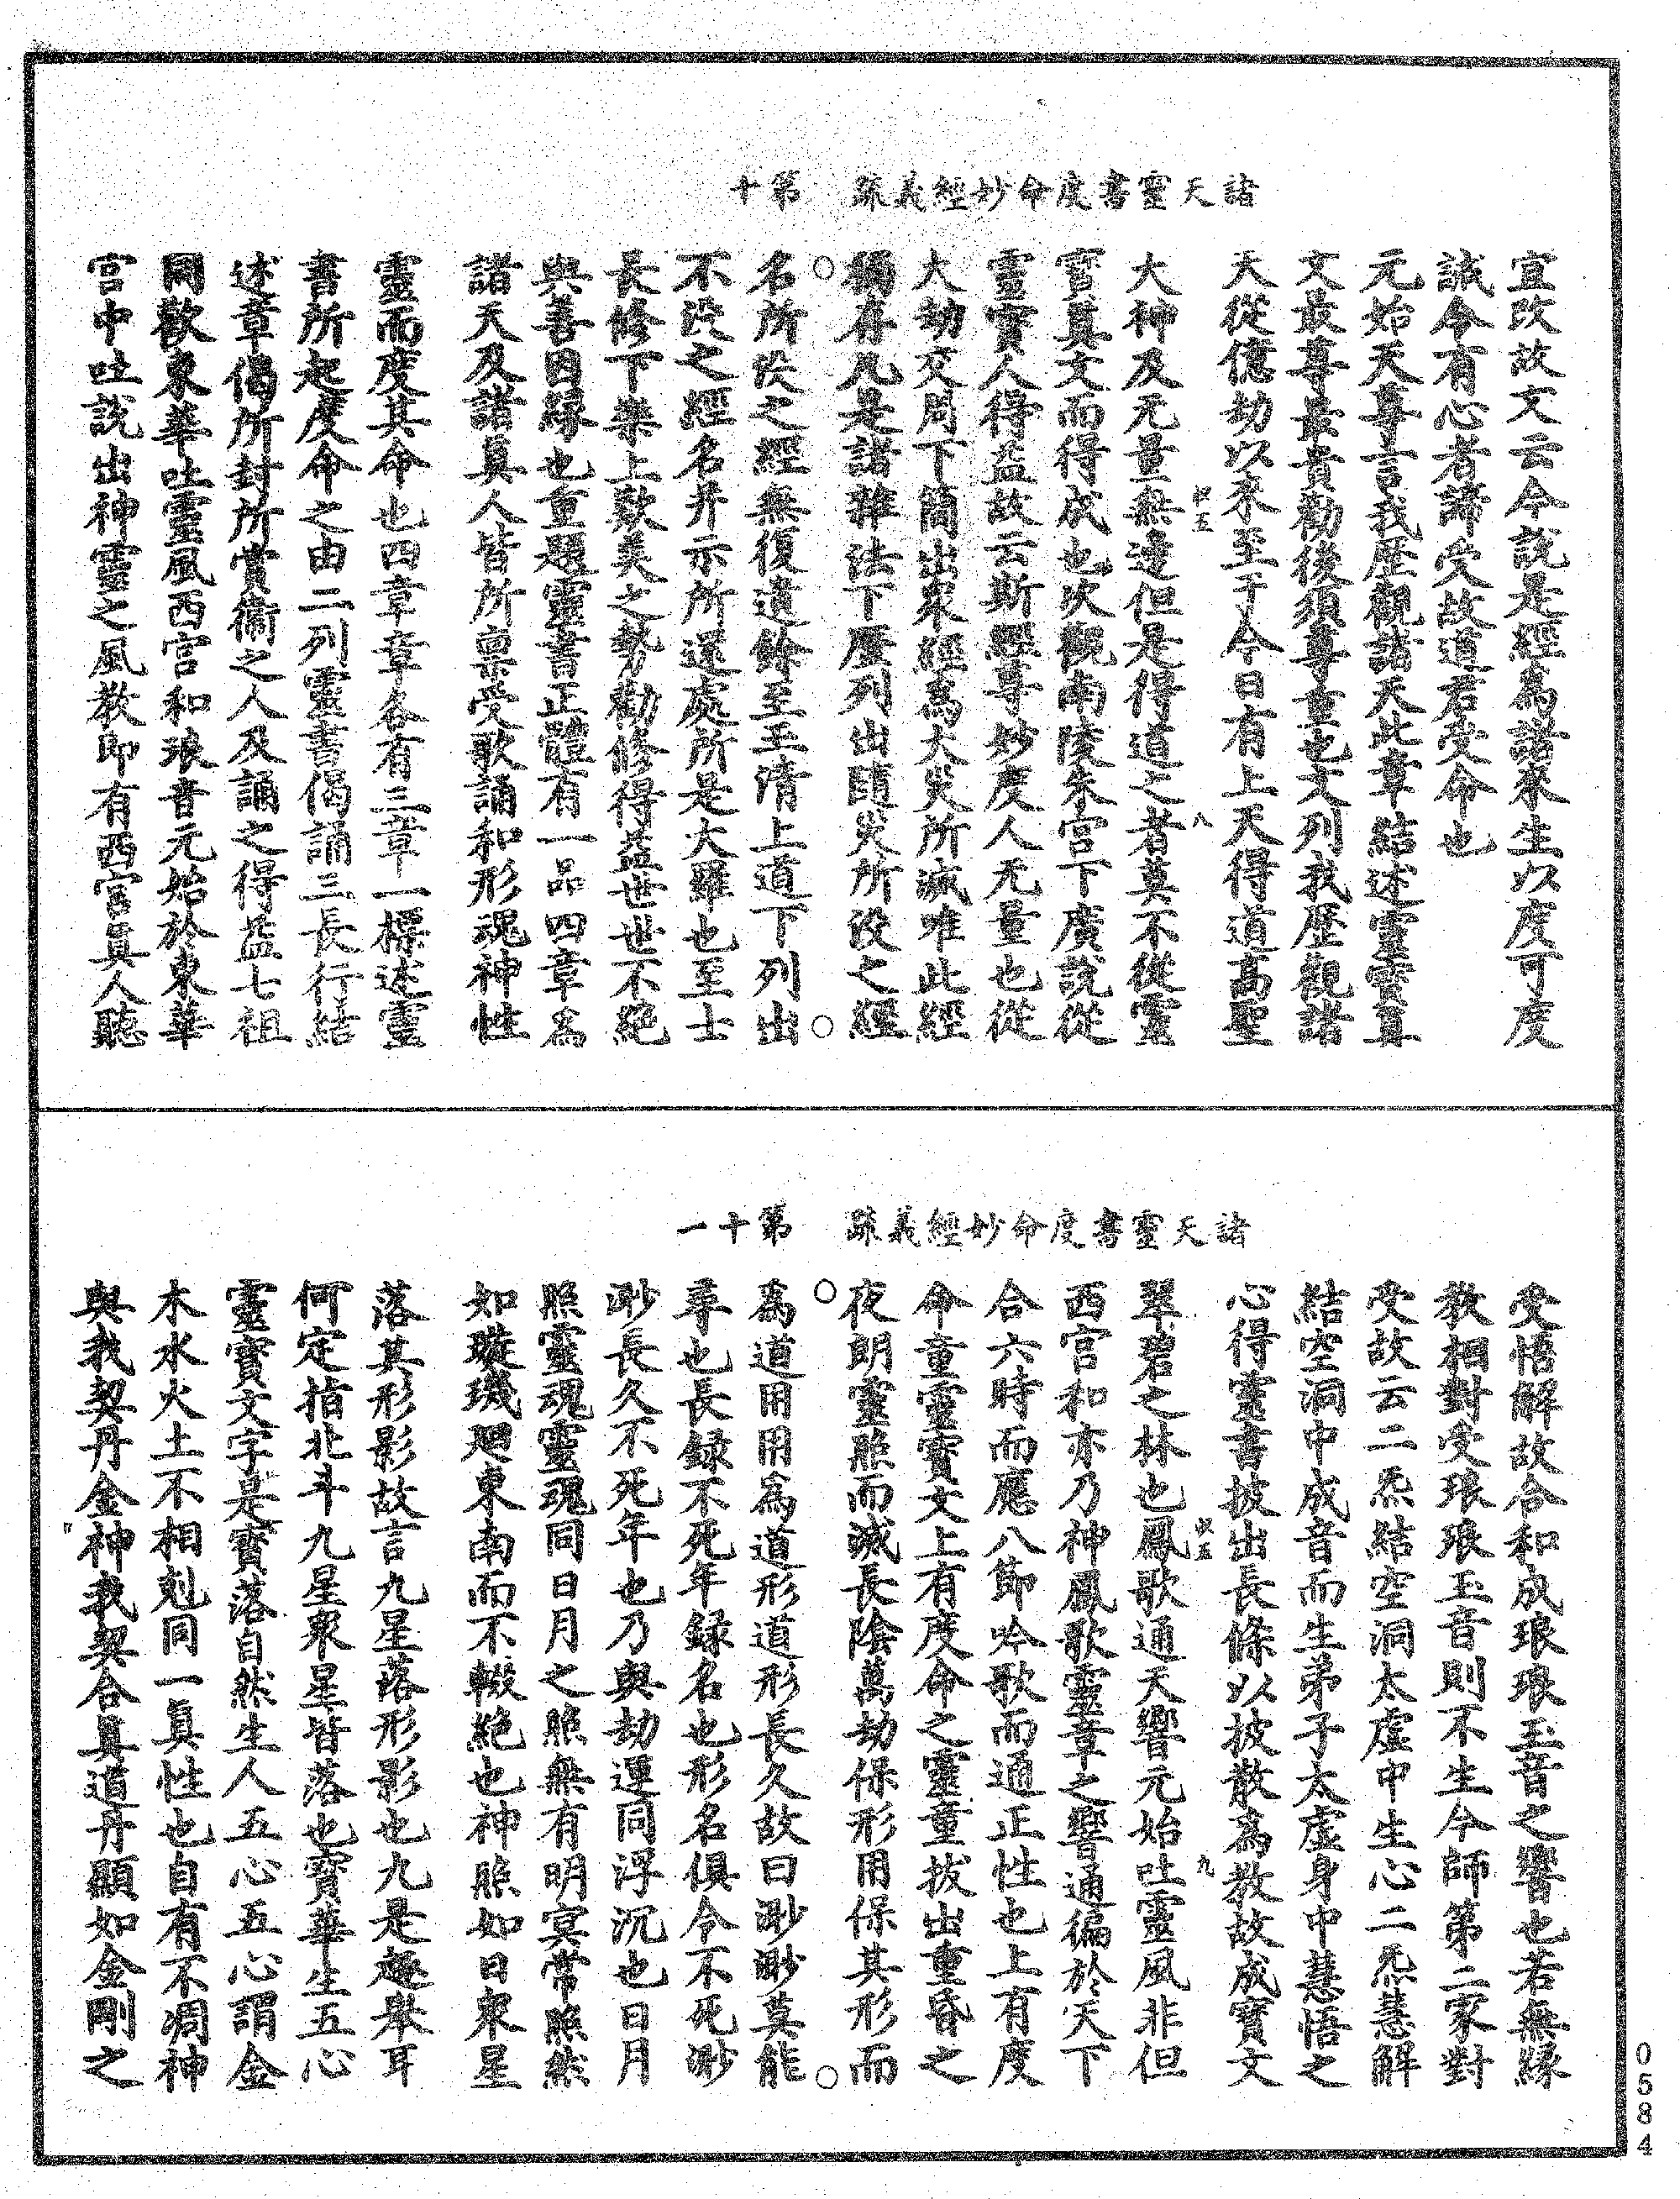 諸天靈書度命妙經義疏　第十
宜改故文云今說是經爲諸來生以度可度
誠令有心者諦受故道君受命也
元始天尊言我歷觀諸天此章結述靈寶眞
文最尊最貴勸後須尊重也文列我歷觀諸
天從億劫以來至于今日有上天得道高聖
大神及元量無邊但是得道之者莫不從靈
寳眞文而得成也次觀南陵朱宫下廣說從
靈寶人得益故云斯經尊妙度人无量也從
大劫交周下簡出衆經爲大災所滅唯此經
獨存凡是諸雜法下歷列出隨災所没之經
名所没之經無復遺餘至玉清上道下列出
不没之經名并示所還處所是大羅也至士
長修下樂上歎美之勢勸修得益世世不絶
與善因緣也重題靈書正體有一品四章爲
諸天及諸眞人皆所稟受歌誦和形魂神性
靈而度其命也四章章各有三章一標述靈
書所起度命之由二列靈書偈誦三長行結
述章偈所封所賞衞之人及誦之得益七祖
同歡東華吐靈風西宫和琅音元始於東華
宫中吐說出神靈之風教即有西宫眞人聽
諸天靈書度命妙經義疏　第十一
受悟解故合和成琅琅玉音之響也若無緣
教相對受琅琅玉音則不生今師第二家對
受故云二炁結空洞太虛中生心二炁慧解
結空洞中成音而生弟子太虛身中慧悟之
心得靈書披出長條以披散爲教故成寳文
翠碧之林也鳳歌通天響元始吐靈風非但
西宫和亦乃神鳳歌靈章之響通徧於天下
合六時而應八節吟歌而通正性也上有度
命童靈寶文上有度命之靈童拔出重昏之
夜朗靈照而滅長陰萬劫保形用保其形而
爲道用用爲道形道形長久故曰渺渺莫能
尋也長録不死年録名也形名俱令不死渺
渺長久不死年也乃與劫運同浮沉也日月
照靈魂靈魂同日月之照無有明冥常照然
如璇璣𢌞東南而不輟絶也神照如日衆星
落其形影故言九星落形影也九是趣舉耳
何定指北斗九星衆星皆落也寳華生五心
靈寶文字是寳落自然生人五心五心謂金
木水火土不相剋同一眞性也自有不凋神
與我契丹金神我契合眞道丹顯如金剛之
0584